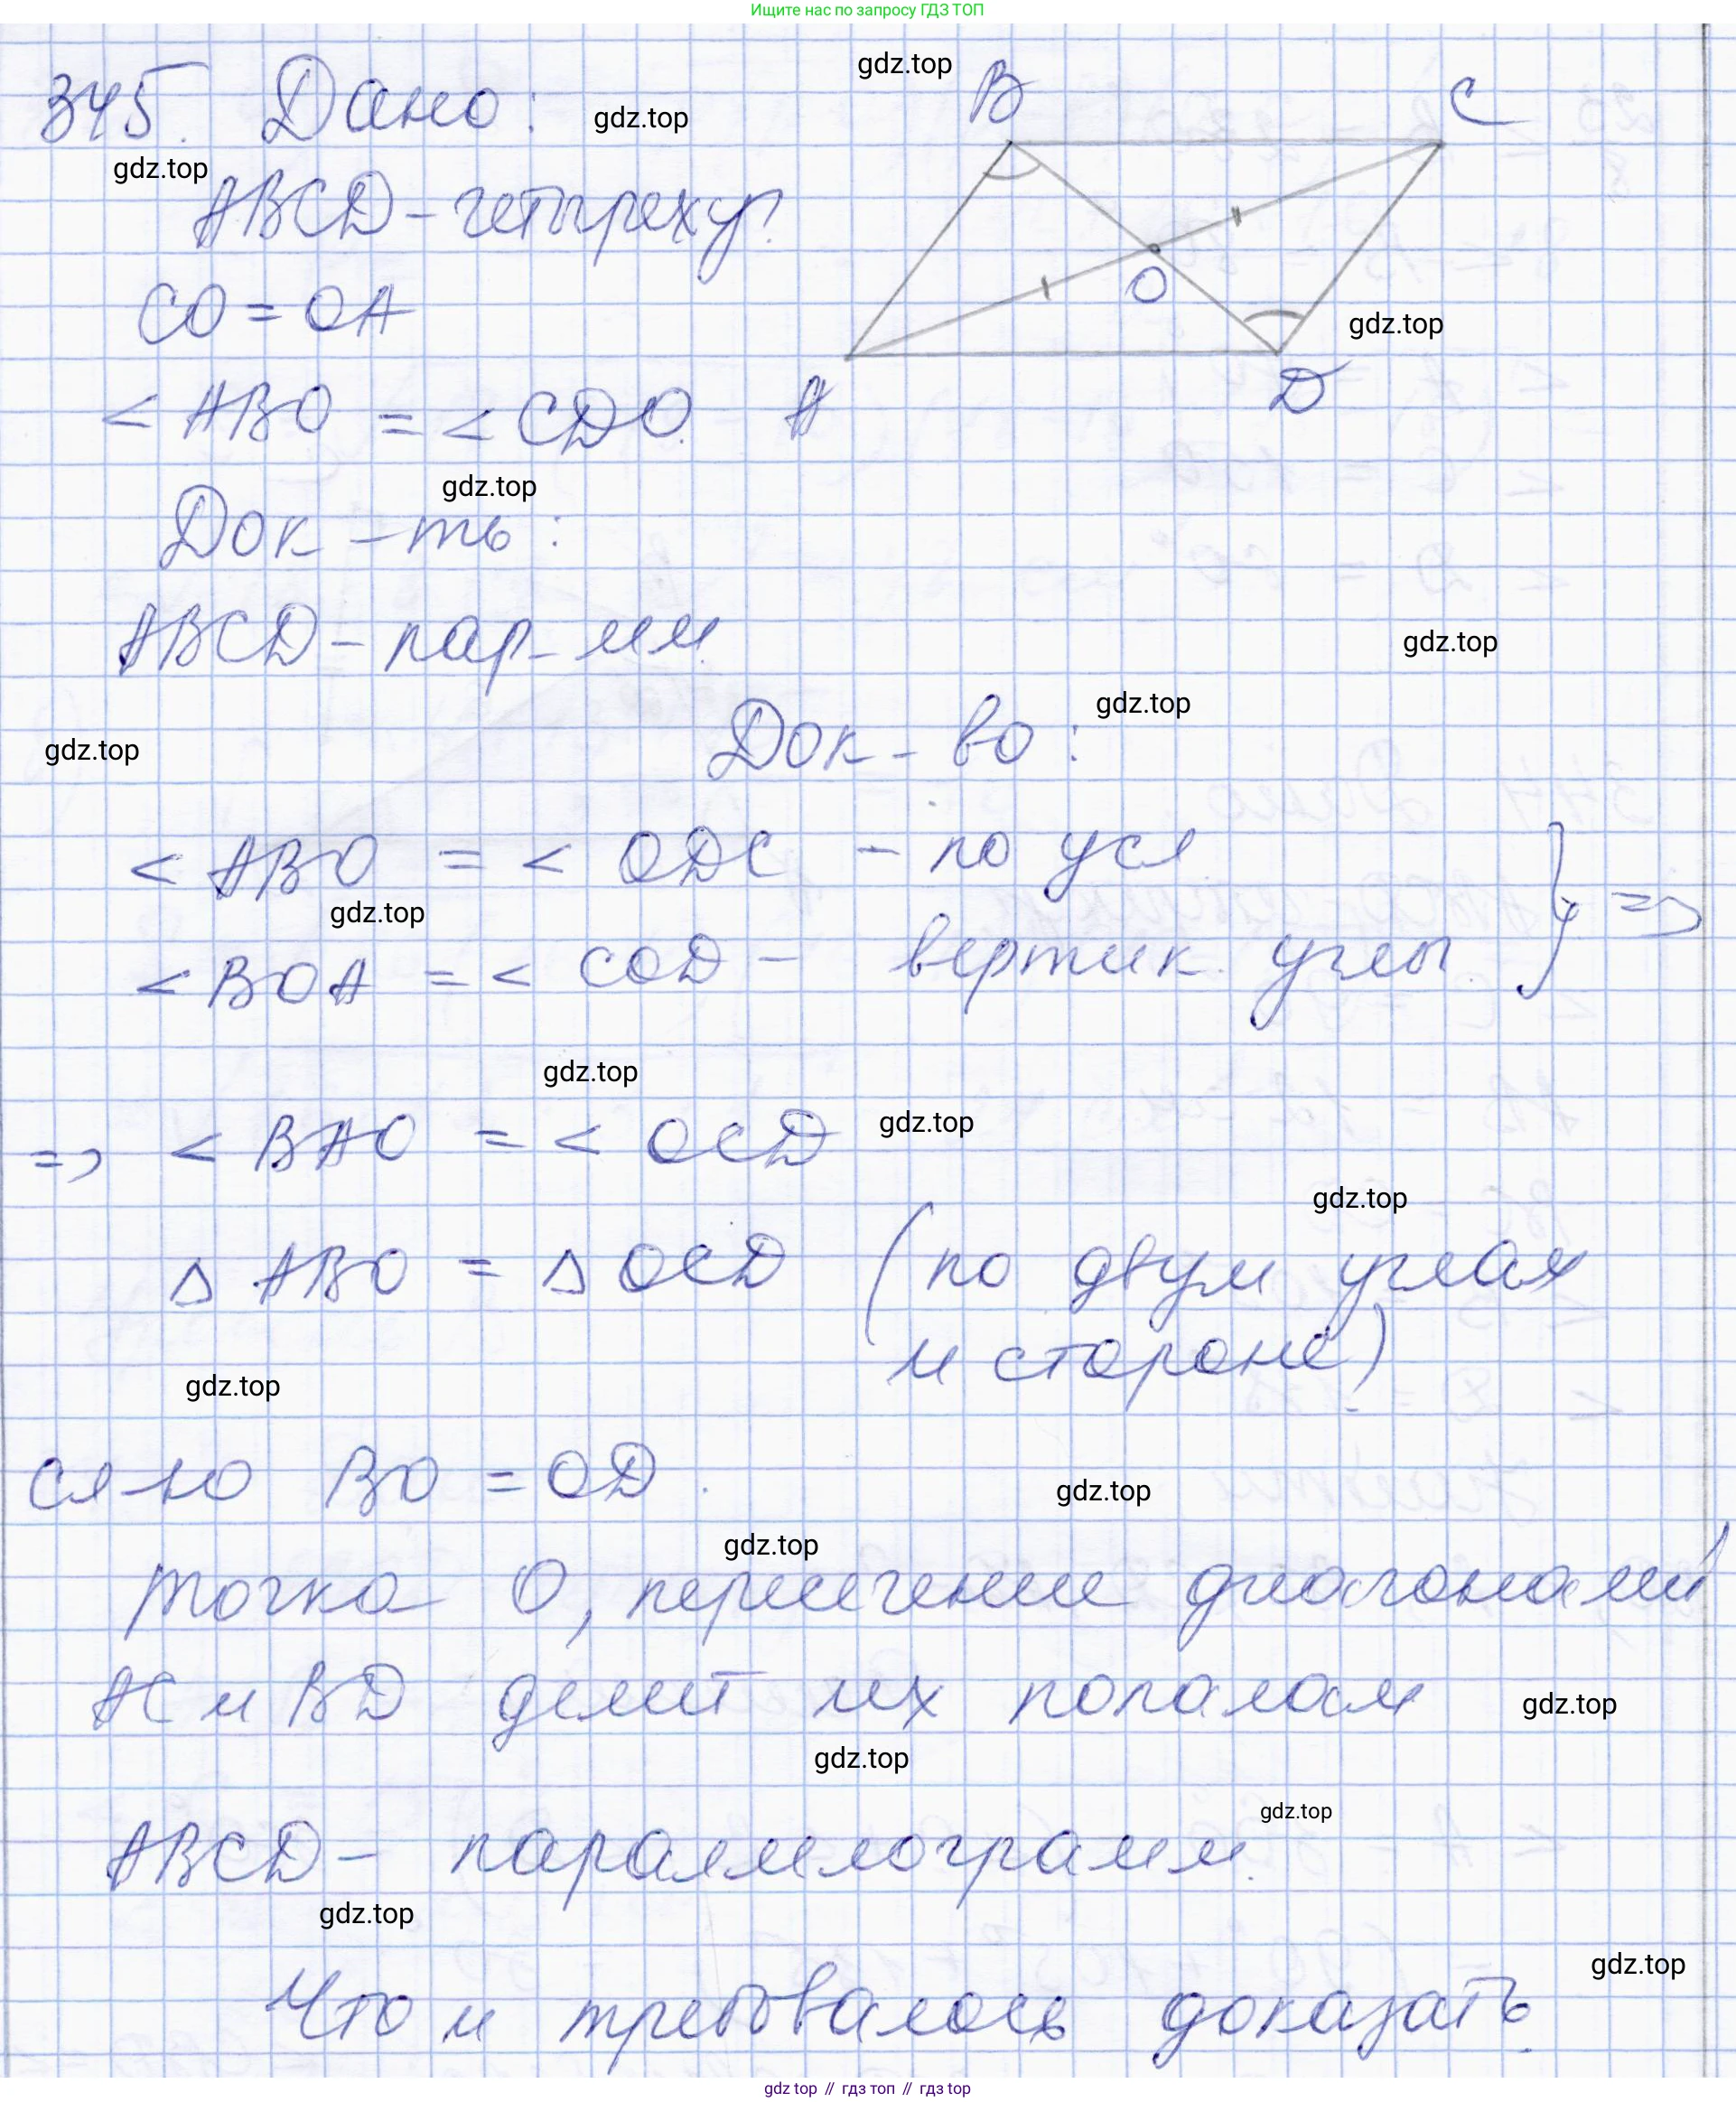 Ищите нас по запросу ГДЗ ТОП
345. Дано:
gdz.top
gdz.top
gdz.top
B
C
ABCD - четырехуг.
CO = OA
O
gdz.top
< ABO = < CDO.
A
D
gdz.top
Док-ть:
ABCD - пар-мм.
gdz.top
gdz.top
Док-во:
gdz.top
< ABO = < ODC - по усл
gdz.top
} =>
< BOA = < COD - вертик. углы.
gdz.top
=> < BAO = < OCD
gdz.top
gdz.top
Δ ABO = Δ OCD (по двум углах
и стороне)
gdz.top
сл-но BO = OD.
gdz.top
gdz.top
точка O, пересечение диагоналей
AC и BD делит их пополам
gdz.top
gdz.top
gdz.top
ABCD - параллелограмм.
gdz.top
gdz.top
Что и требовалось доказать.
gdz top // гдз топ // gdz top